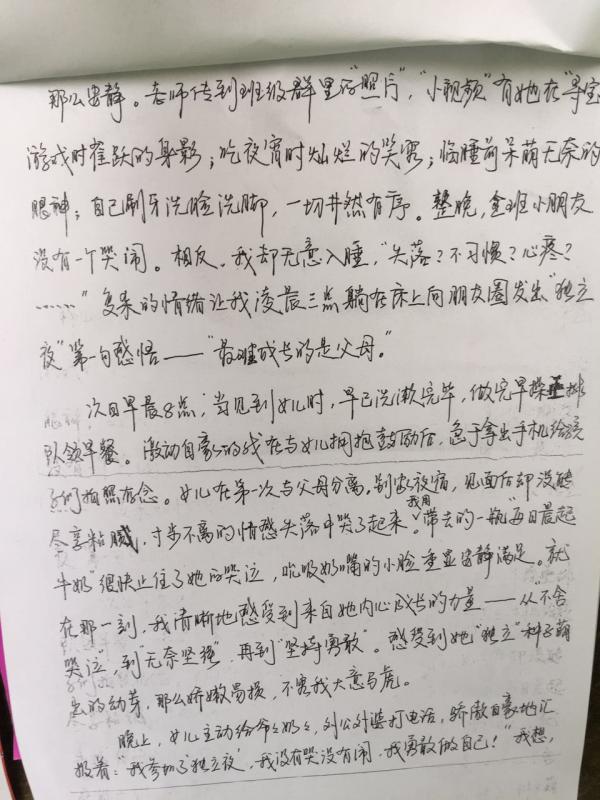 那么安静。老师传到班级群里的“照片”，“小视频”有她在“寻宝
游戏时雀跃的身影；吃夜宵时灿烂的笑容；临睡前呆萌无奈的
眼神；自己刷牙洗脸洗脚，一切井然有序。整晚，全班小朋友
没有一个哭闹。相反，我却无意入睡，“失落？不习惯？心疼？
……”复杂的情绪让我凌晨三点躺在床上向朋友圈发出“独立
夜”第一句感悟——“最难成长的是父母。”
次日早晨8点，当见到女儿时，早已洗漱完毕，做完早操排
队领早餐。激动自豪的我在与女儿拥抱鼓励后，急于拿出手机给孩
子们拍照存念。女儿在第一次与父母分离，别家夜宿，见面后却没能
尽享粘腻，寸步不离的情感失落中哭了起来。我用带去的一瓶“每日晨起
牛奶”很快止住了她的哭泣，吮吸奶嘴的小脸重显安静满足。就
在那一刻，我清晰地感受到来自她内心成长的力量——从“不舍
哭泣”，到“无奈坚强”，再到“坚持勇敢”。感受到她“独立”种子萌
出的幼芽，那么娇嫩易损，不容我大意马虎。
晚上，女儿主动给爷爷奶奶，外公外婆打电话，骄傲自豪地汇
报着：“我参加了‘独立夜’，我没有哭没有闹，我勇敢做自己！”我想，